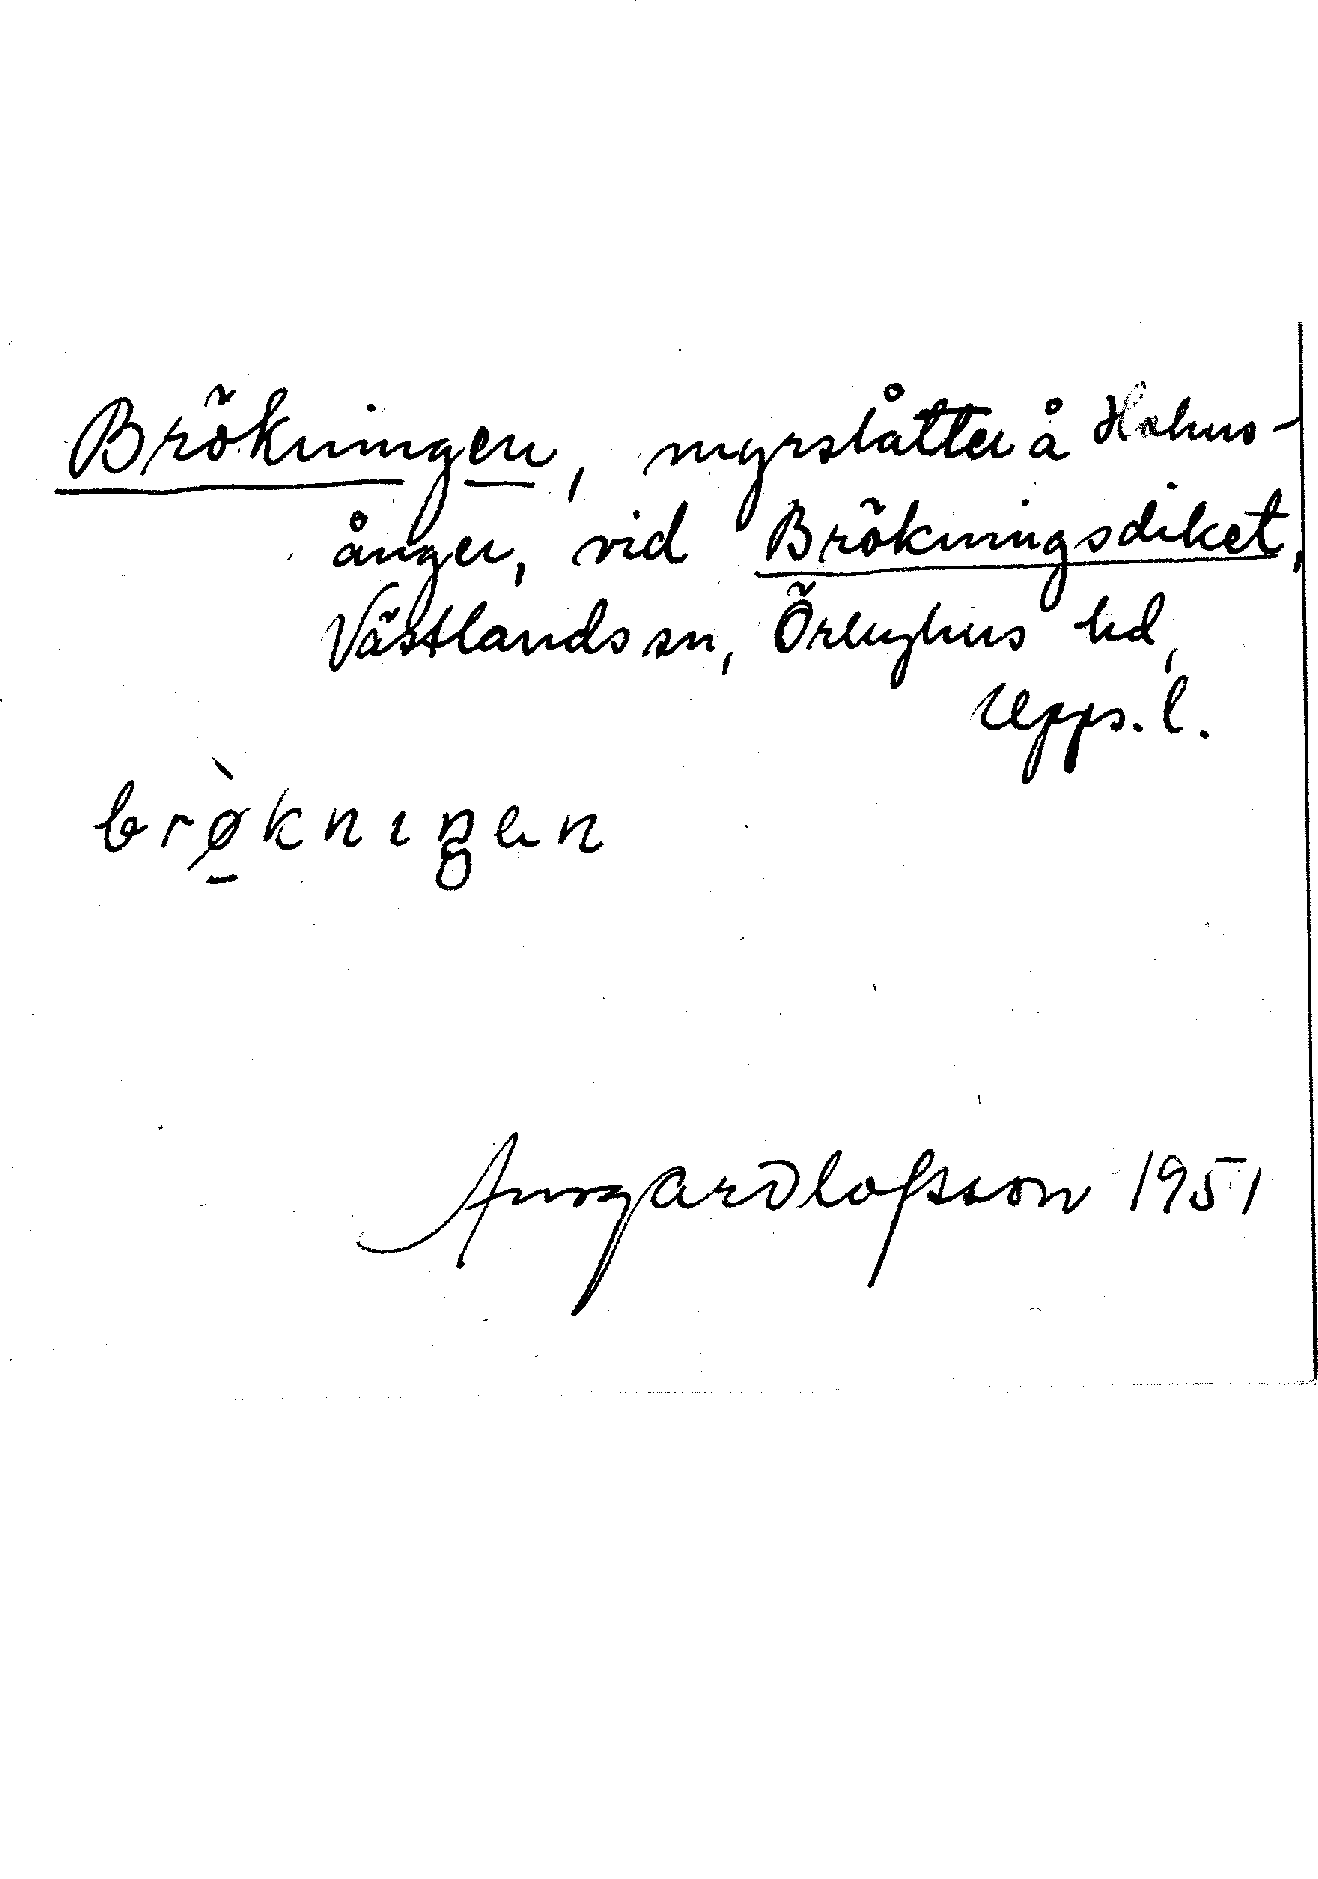 Brökningen, myrslåtter å Hohus-
ånger, vid Brökningsdiket,
Västlands sn, Örbyhus hd,
Upps. l.
brø̀kniŋen
Ansgar Olofsson 1951